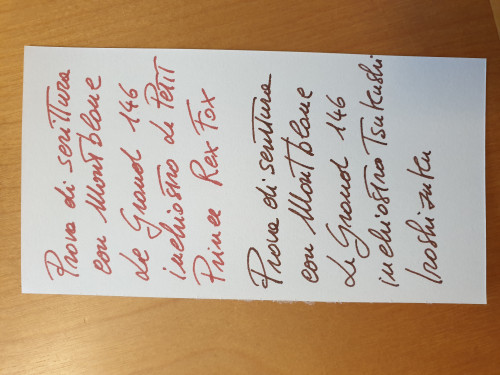 Prova di scrittura
con Montblanc
Le Grand 146
inchiostro di Petit
Prince Rex Fox
Prova di scrittura
con Montblanc
Le Grand 146
inchiostro Tsukushi
Iroshizuku